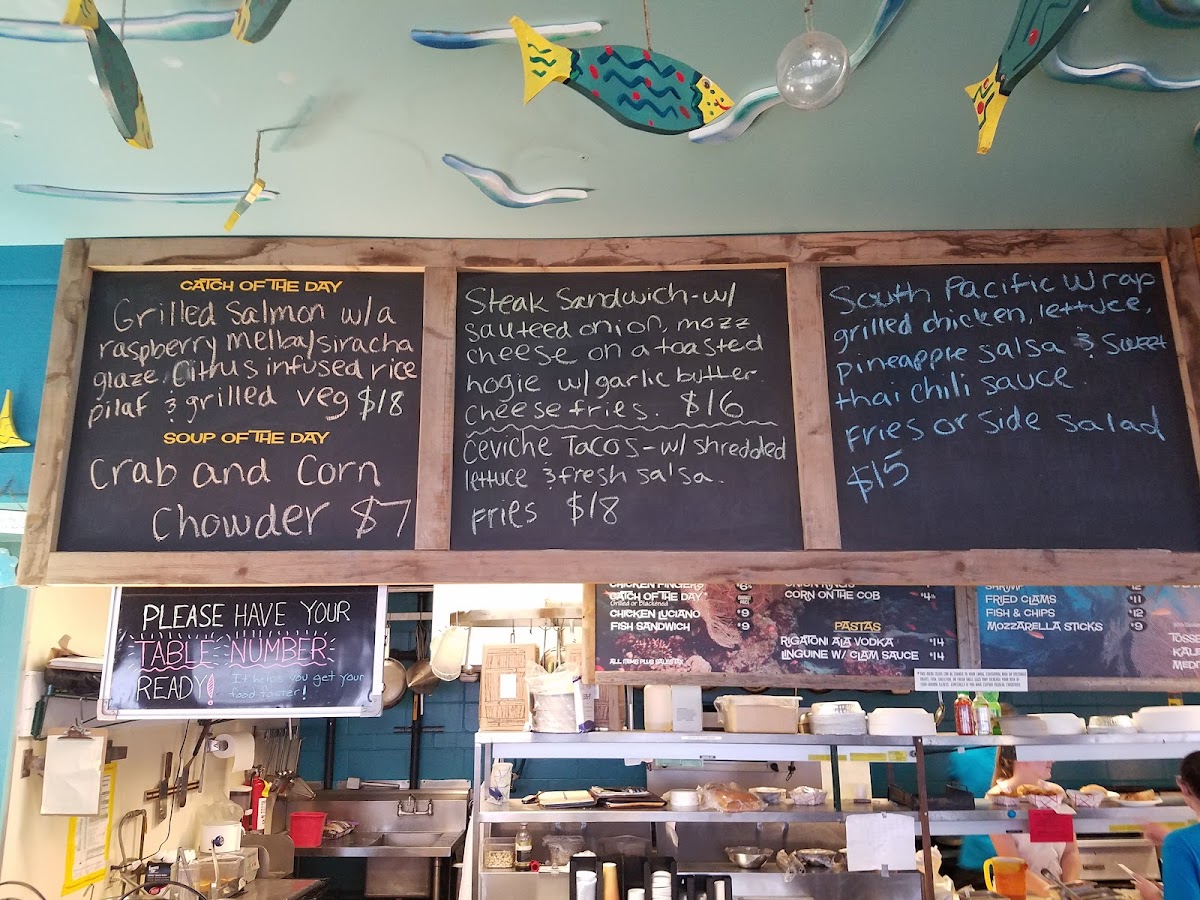 CATCH OF THE DAY
Grilled Salmon w/a
raspberry melba/siracha
glaze. Citrus infused rice
pilaf & grilled veg $18
SOUP OF THE DAY
Crab and Corn
Chowder $7
Steak Sandwich-w/
sauteed onion, mozz
cheese on a toasted
hogie w/garlic butter.
cheese fries. $16
Ceviche Tacos-w/ shredded
lettuce & fresh salsa.
Fries $18
South Pacific Wrap
grilled chicken, lettuce,
pineapple salsa & sweet
thai chili sauce.
Fries or side salad
$15
PLEASE HAVE YOUR
TABLE NUMBER
READY!
It helps you get your
food faster!
CHICKEN FINGERS
CATCH OF THE DAY
Grilled or Blackened
CHICKEN LUCIANO $9
FISH SANDWICH $9
ALL ITEMS PLUS SALES TAX
ONION RINGS
CORN ON THE COB
PASTAS
RIGATONI ALA VODKA $14
LINGUINE W/ CLAM SAUCE $14
SHRIMP
FRIED CLAMS $11
FISH & CHIPS $12
MOZZARELLA STICKS $9